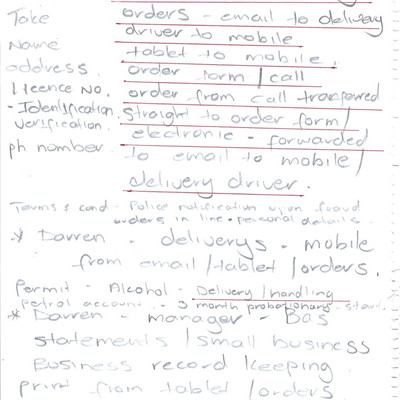 Take orders - email to delivery
driver to mobile
Name tablet to mobile.
address. order form / call
Licence No. order from call transpered
- Identification straight to order form /
verification. electronic - forwarded
ph number to email to mobile /
delivery driver.
Terms & cond - Police notification upon fraud
orders in line + personal details.
* Darren - deliverys - mobile
from email / tablet / orders.
Permit - Alcohol - Delivery / handling
petrol account - 3 month probationary - start.
* Darren - manager - BAS
statements / small business
Business record keeping
print from tablet / orders